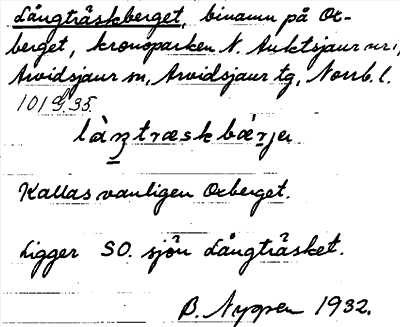 Långträskberget, binamn på Ox-
berget, kronoparken N. Auktsjaur nr 1,
Arvidsjaur sn, Arvidsjaur tg, Norrb. l.
101 9 35.
làŋtræskbærjer
Kallas vanligen Oxberget.
Ligger SO. sjön Långträsket.
B. Nygren 1932.